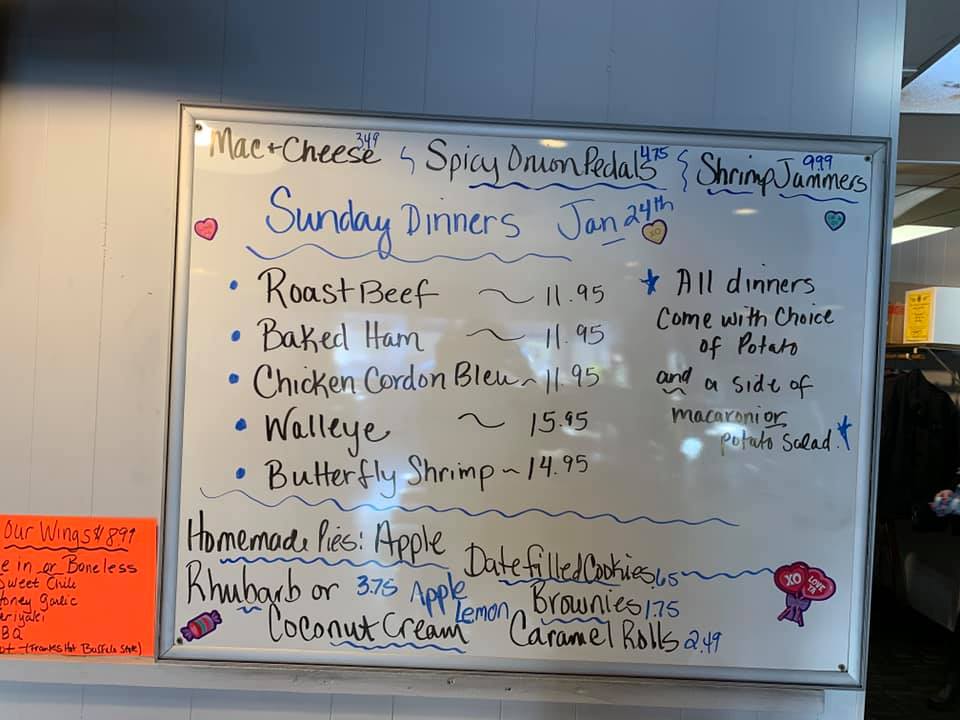 Mac + Cheese 3.49 Spicy Onion Pedals 4.75 Shrimp Jammers 9.99
Sunday Dinners Jan 24th
• Roast Beef ~ 11.95
• Baked Ham ~ 11.95
• Chicken Cordon Bleu ~ 11.95
• Walleye ~ 15.95
• Butterfly Shrimp ~ 14.95
★ All dinners
come with choice
of Potato
and a side of
macaroni or
potato salad. ★
Homemade Pies: Apple
Rhubarb or 3.75 Apple
Lemon
Coconut Cream
Date filled Cookies .65
Brownies 1.75
Caramel Rolls 2.49
XO LOVE
XO
Our Wings $8.99
e in or Boneless
Sweet Chili
oney Garlic
eriyaki
BQ
ot - (Franks Hot Buffalo Style)